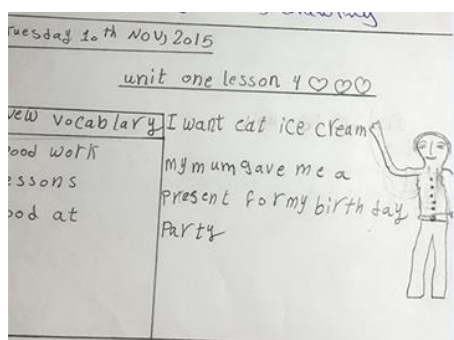 drawing
Tuesday 10th Nov, 2015
unit one lesson 4
new vocablary
I want eat ice cream
good work
my mum gave me a
lessons
present for my birth day
good at
Party